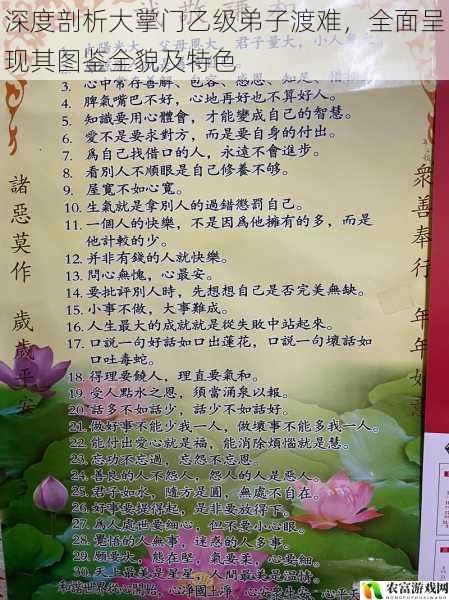 深度剖析大掌门乙级弟子渡难,全面呈
现其图鉴全貌及特色
3. 心中常存善解、包容、感恩、知足、惜
4. 脾氣嘴巴不好,心地再好也不算好人。
5. 知識要用心體會,才能變成自己的智慧。
6. 愛不是要求對方,而是要自身的付出。
7. 爲自己找借口的人,永遠不會進步。
8. 看别人不順眼是自己修養不够。
9. 屋寬不如心寬。
10. 生氣就是拿别人的過錯懲罰自己。
11. 一個人的快樂,不是因爲他擁有的多,而是
他計較的少。
12. 并非有錢的人就快樂。
13. 問心無愧,心最安。
14. 要批評别人時,先想想自己是否完美無缺。
15. 小事不做,大事難成。
16. 人生最大的成就就是從失敗中站起來。
17. 口説一句好話如口出蓮花,口説一句壞話如
口吐毒蛇。
18. 得理要饒人,理直要氣和。
19. 受人點水之恩,須當涌泉以報。
20. 話多不如話少,話少不如話好。
21. 做好事不能少我一人,做壞事不能多我一人。
22. 能付出愛心就是福,能消除煩惱就是慧。
23. 忘功不忘過,忘怨不忘恩。
24. 善良的人不怨人,怨人的人是惡人。
25. 君子如水,隨方是圓,無處不自在。
26. 好事要提得起,是非要放得下。
27. 爲人處世要細心,但不要小心眼。
28. 覺悟的人無事,迷惑的人多事。
29. 願要大,態在堅,氣要柔,心要細。
30. 天上最美是星星,人間最美是溫情。
心淨國土淨
諸惡莫作 歲歲平安
衆善奉行 年年好
农富游戏网
NONGFUYOUXIWANG